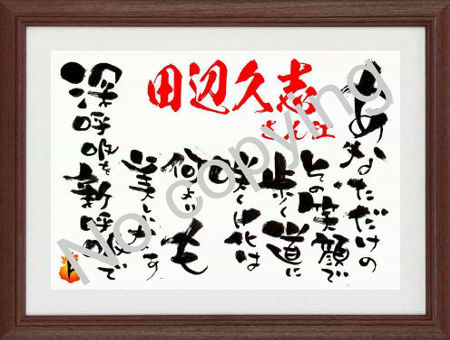 田辺久志
さん江
あなただけの
その笑顔で
歩く道に
咲く花は
何より
も
美しい
深呼吸を新呼吸で
No copying